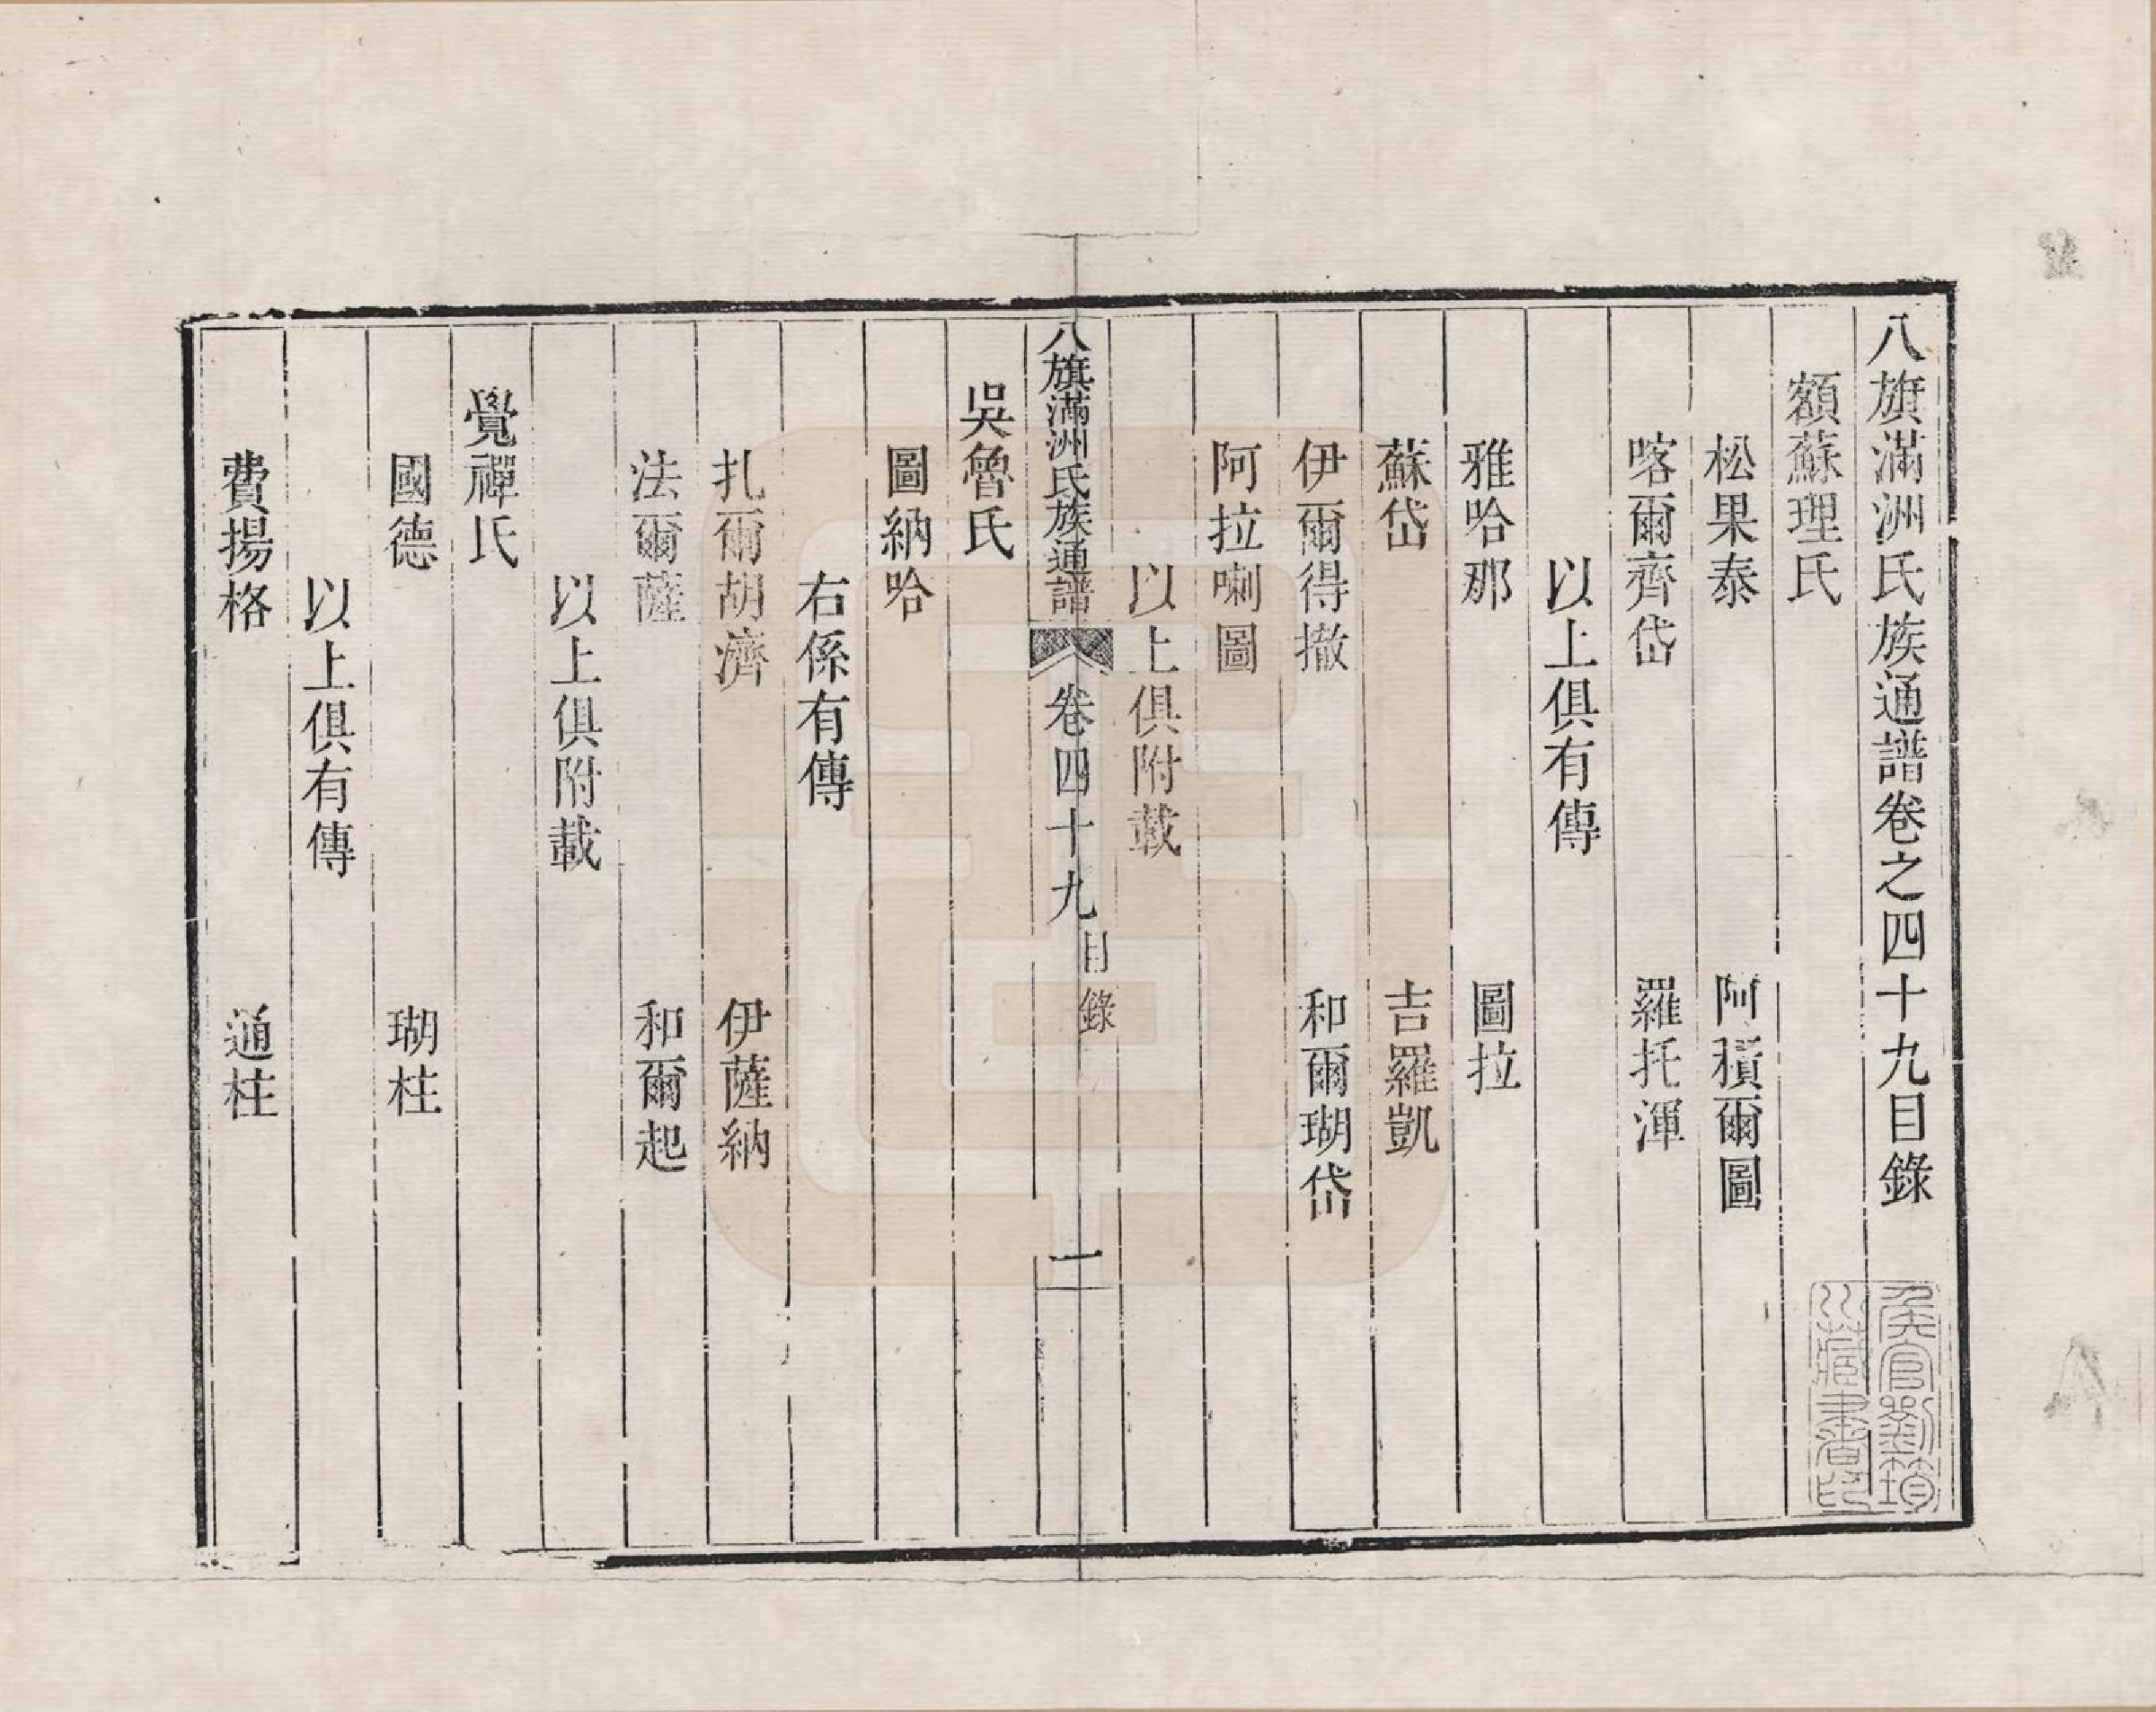 八旗滿洲氏族通譜卷之四十九目錄
額蘇理氏
松果泰 阿積爾圖
喀爾齊岱 羅托渾
以上俱有傳
雅哈那 圖拉
蘇岱 吉羅凱
伊爾得撤 和爾瑚岱
阿拉喇圖
以上俱附載
八旗滿洲氏族通譜 卷四十九 目錄 一
吳魯氏
圖納哈
右係有傳
扎爾胡濟 伊薩納
法爾薩 和爾起
以上俱附載
覺禪氏
國德 瑚柱
以上俱有傳
費揚格 通柱
侯官劉筠
川藏書印